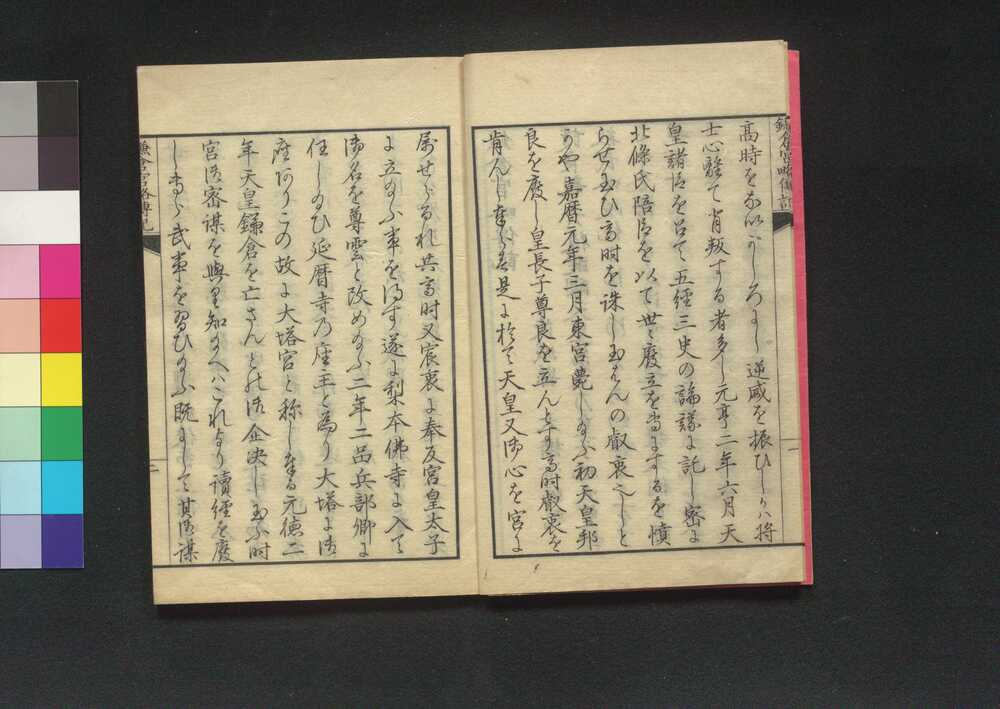 鎌倉宮略傳記
高時をないがしろにし逆威を振ひしかハ将
士心離て背叛する者多し元亨二年六月天
皇諸臣を召て五経三史の論議に託し密に
北條氏陪臣を以て世々廢立を
らせ玉ひ高時を誅し玉はんの叡衷ましと
かや嘉暦元年三月東宮薨し給ふ初天皇邦
良を廢し皇長子尊良を立んとす高時叡衷を
肯んし奉らす是に於て天皇又御心を宮に
属せらるれ共高時又宸衷に奉反宮皇太子
に立給ふ事を得す遂に梨本佛寺に入て
御名を尊雲と改め給ふ二年二品兵部卿に
任し給ひ延暦寺乃座主と為り大塔に御
座ありこの故に大塔宮と称し奉る元徳二
年天皇鎌倉を亡さんとの御企決し玉ふ時
宮御密謀を與里知給へハこれより讀経を廢
し専ら武事を習ひ給ふ既にして其御謀
鎌倉宮略傳記
一
二